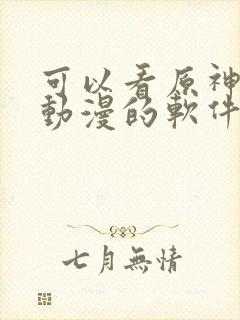 可以看原神
動漫的軟件
七月無情